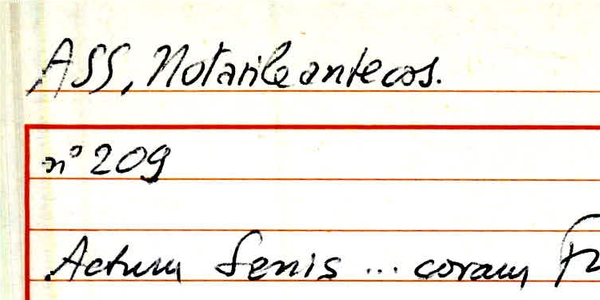 ASS, Notarile antecos.
n° 209
Actum Senis ... coram